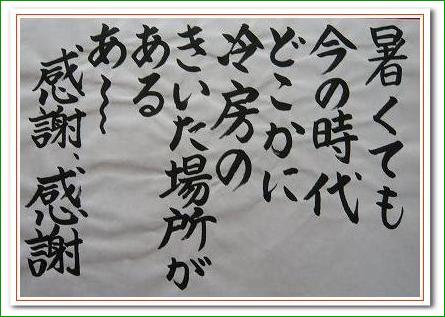 暑くても
今の時代
どこかに
冷房の
きいた場所が
ある
あ～
感謝、感謝